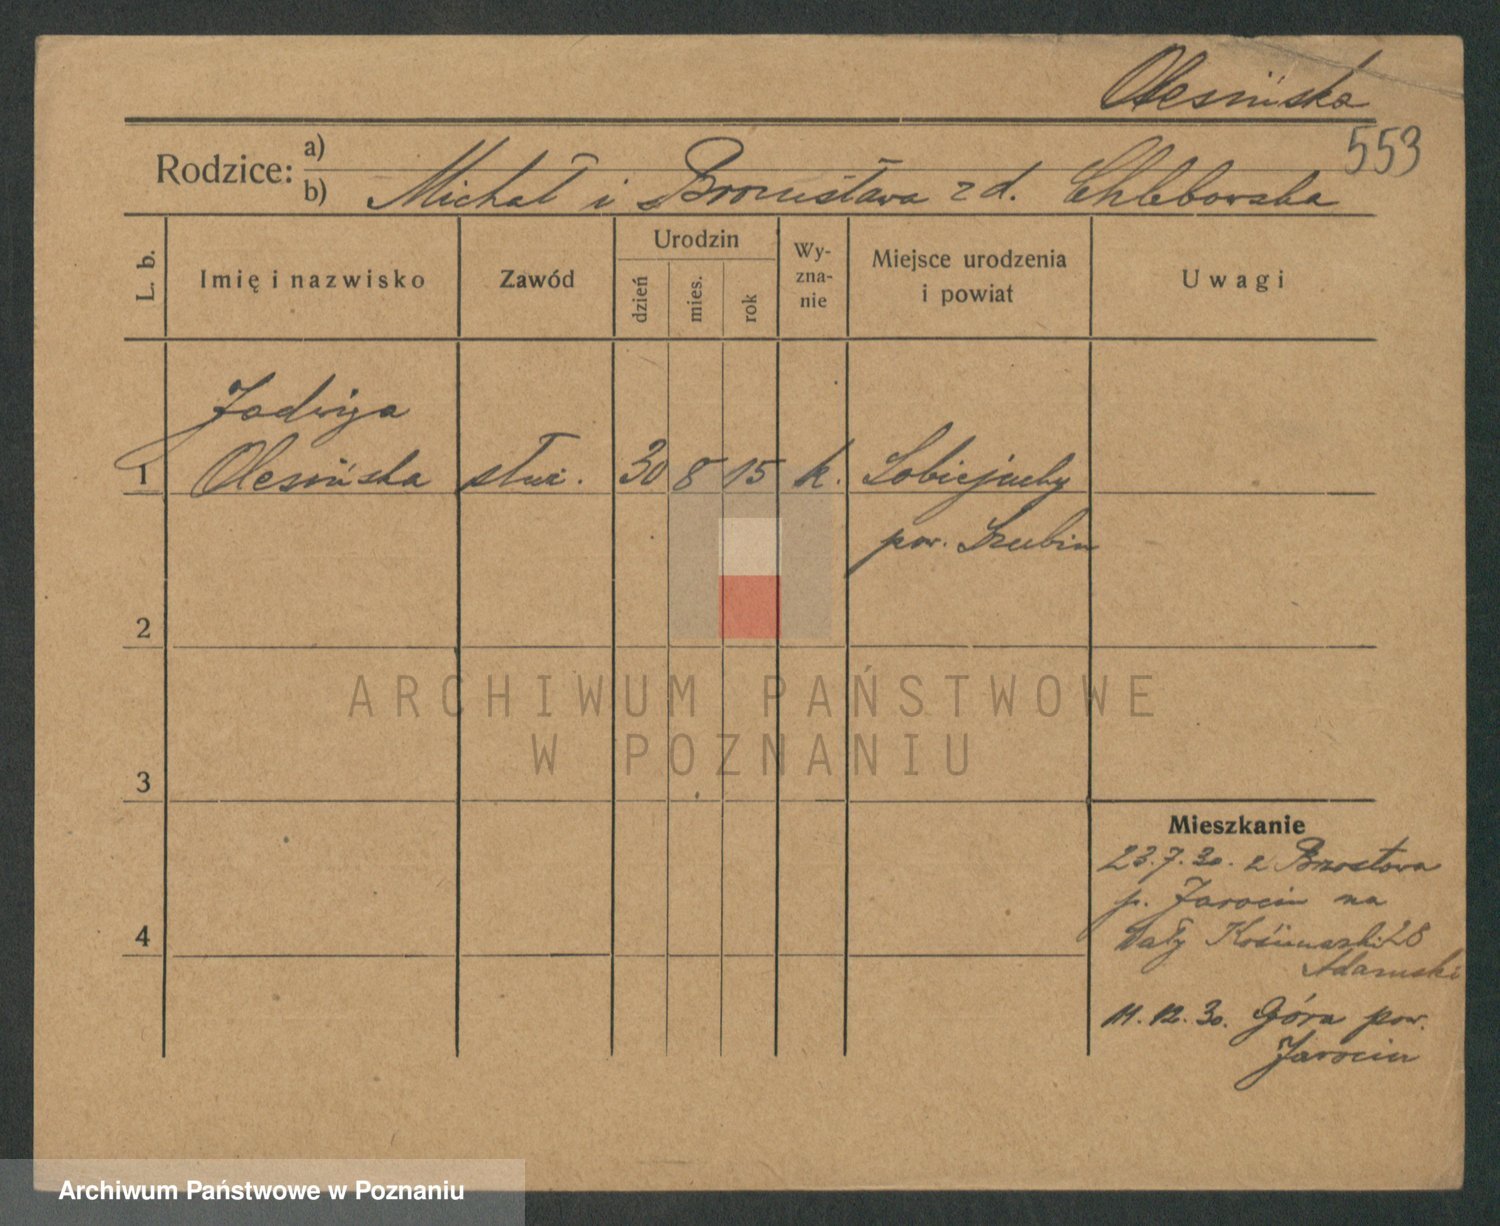 Olesińska
553
Rodzice: a)
b) Michał i Bronisława z d. Chlebowska
L. b.
Imię i nazwisko
Zawód
Urodzin
dzień
mies.
rok
Wy-
zna-
nie
Miejsce urodzenia
i powiat
Uwagi
Jadwiga
1 Olesińska służ. 30 8 15 k. Sobiejuchy
pow. Szubin
2
3
4
ARCHIWUM PAŃSTWOWE
W POZNANIU
Mieszkanie
23.7.30. z Brzostowa
p. Jarocin na
Wały 28
Adamski
11.12.30. Góra pow.
Jarocin
Archiwum Państwowe w Poznaniu